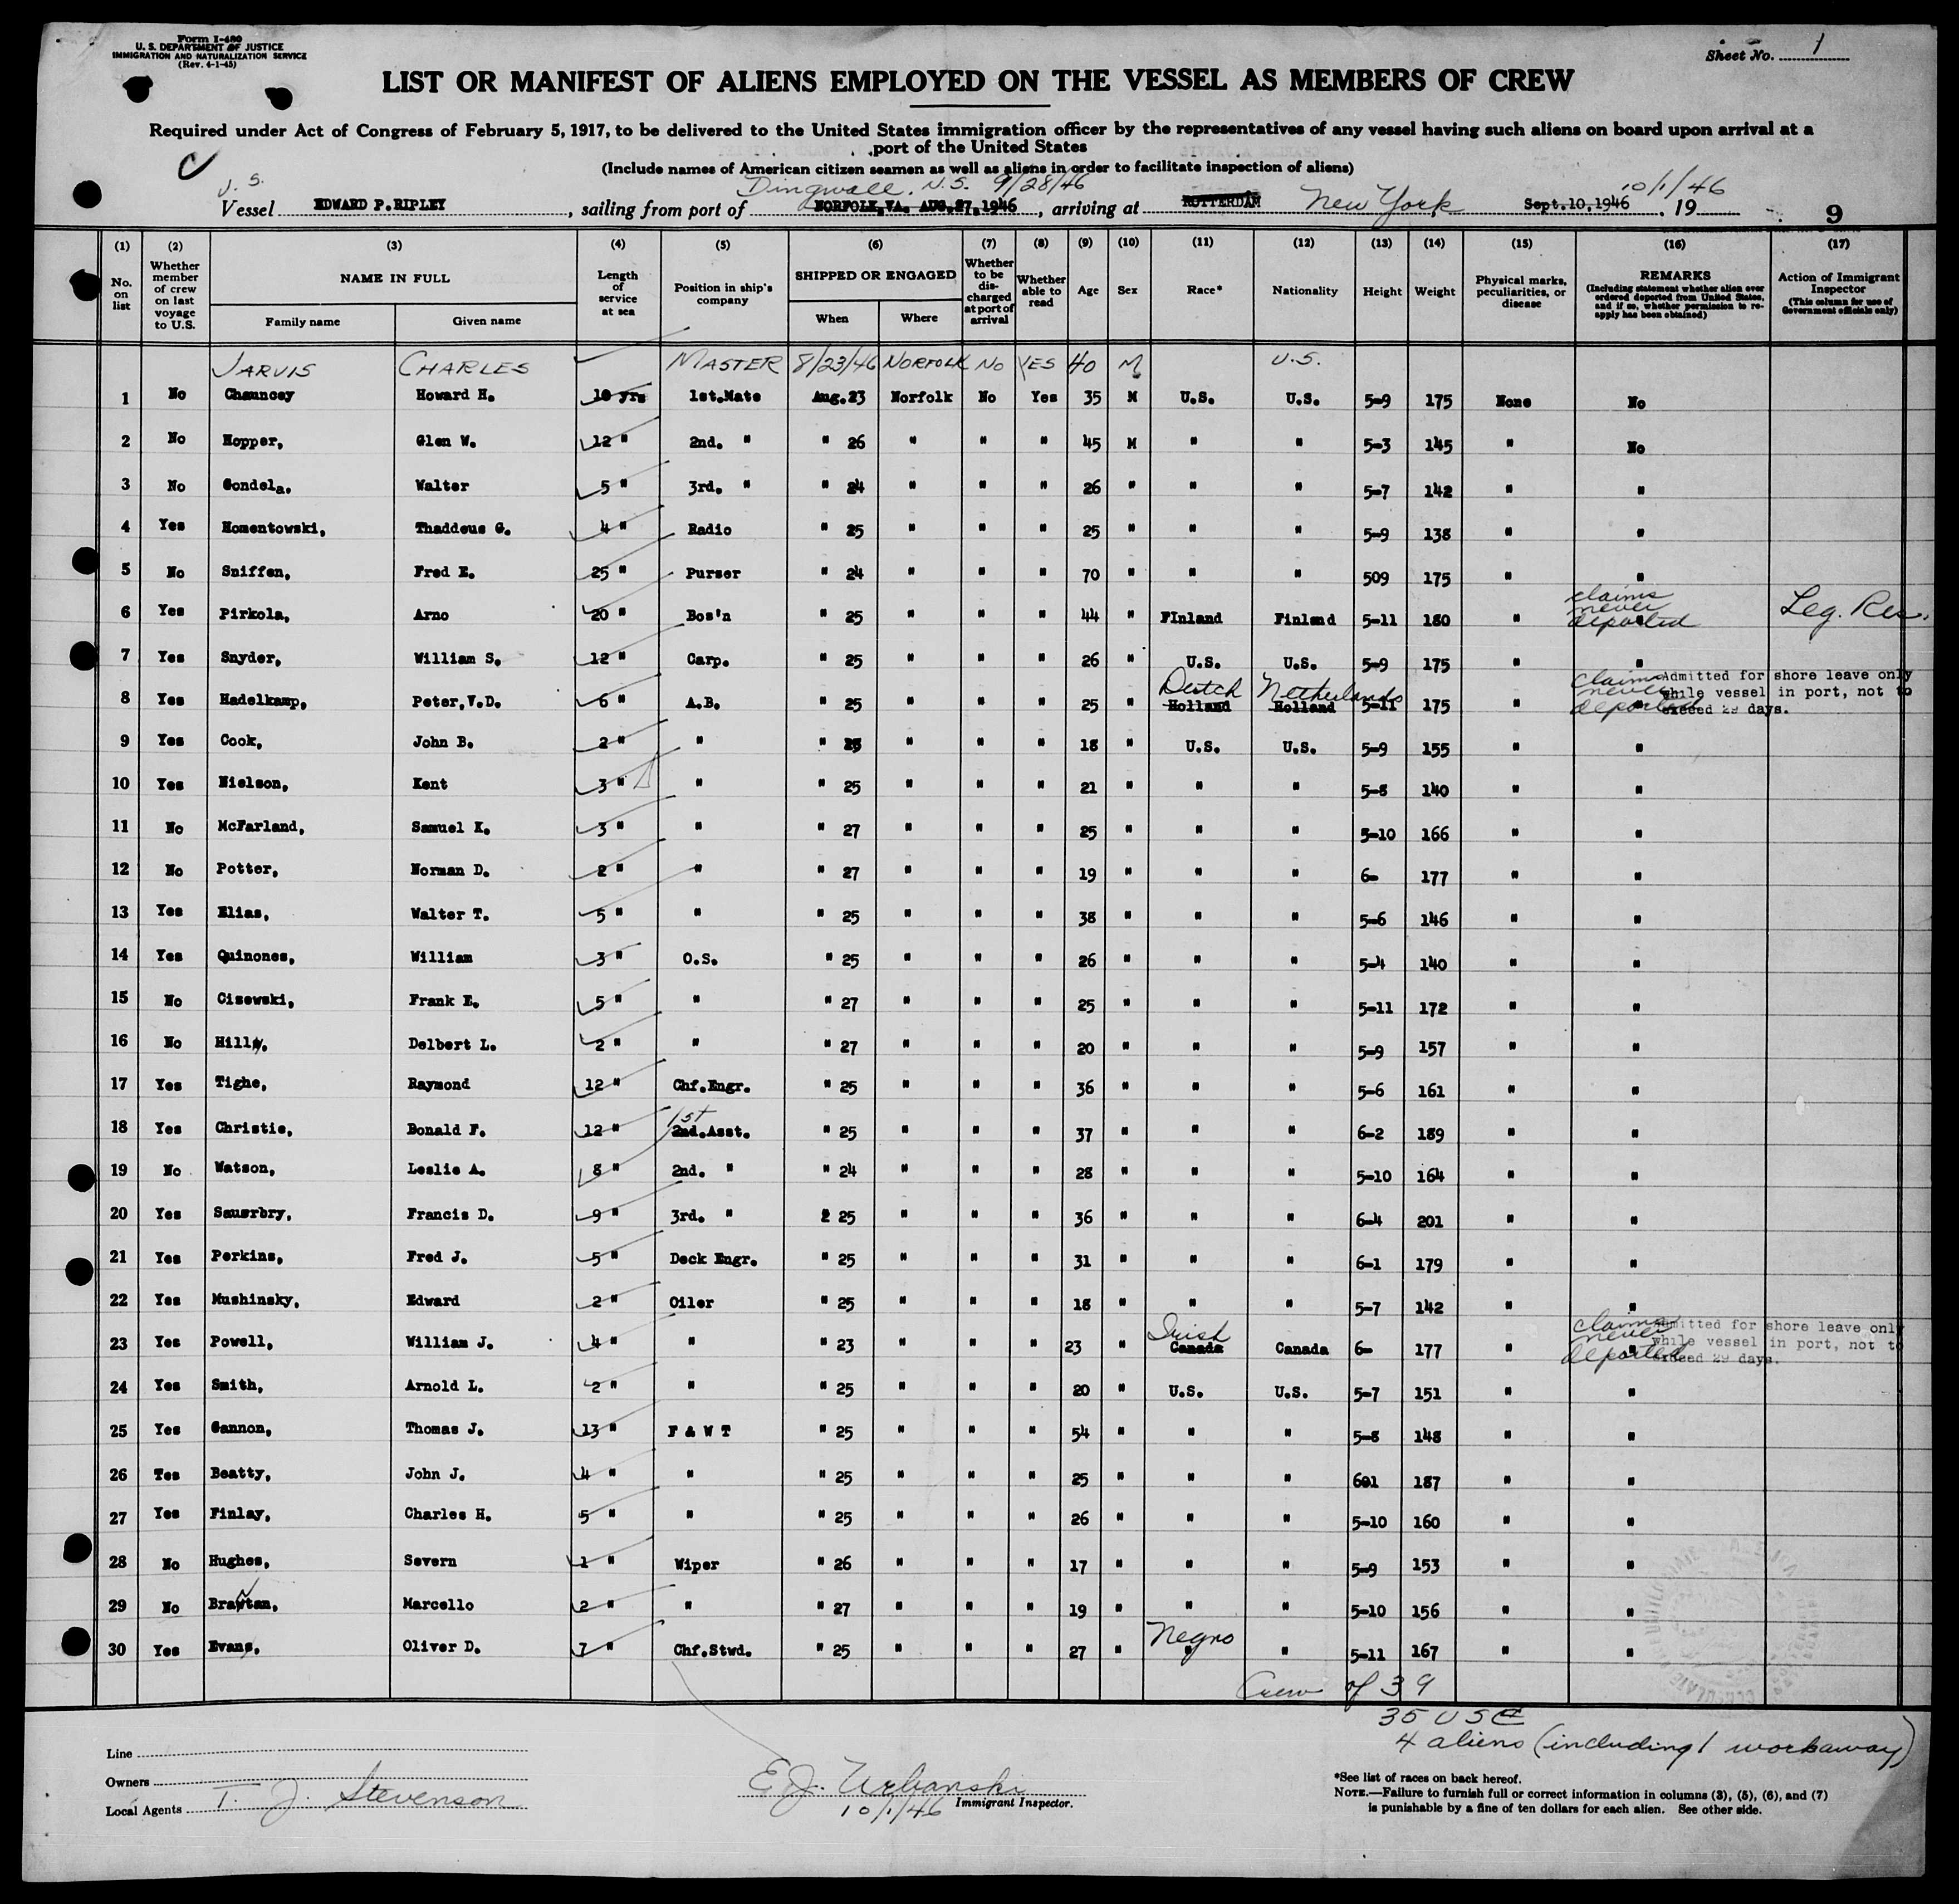 Form I-480
U. S. DEPARTMENT OF JUSTICE
IMMIGRATION AND NATURALIZATION SERVICE
(Rev. 4-1-45)
Sheet No. 1
LIST OR MANIFEST OF ALIENS EMPLOYED ON THE VESSEL AS MEMBERS OF CREW
Required under Act of Congress of February 5, 1917, to be delivered to the United States immigration officer by the representatives of any vessel having such aliens on board upon arrival at a
port of the United States
(Include names of American citizen seamen as well as aliens in order to facilitate inspection of aliens)
U.S. Dingwall. N.S. 9/28/46 10/1/46
Vessel EDWARD P.RIPLEY, sailing from port of NORFOLK,VA. AUG.27,1946, arriving at ROTTERDAM New York Sept.10,1946, 19 9
(1) (2) (3) (4) (5) (6) (7) (8) (9) (10) (11) (12) (13) (14) (15) (16) (17)
No. on list Whether member of crew on last voyage to U.S. NAME IN FULL Family name Given name Length of service at sea Position in ship's company SHIPPED OR ENGAGED When Where Whether to be discharged at port of arrival Whether able to read Age Sex Race* Nationality Height Weight Physical marks, peculiarities, or disease REMARKS (Including statement whether alien ever ordered deported from United States, and if so, whether permission to reapply has been obtained) Action of Immigrant Inspector (This column for use of Government officials only)
JARVIS CHARLES MASTER 8/23/46 NORFOLK NO YES 40 M U.S.
1 No Chauncey Howard H. 18 yrs 1st.Mate Aug.23 Norfolk No Yes 35 M U.S. U.S. 5-9 175 None No
2 No Hopper, Glen W. 12 " 2nd. " " 26 " " " 45 M " " 5-3 145 " No
3 No Gondela, Walter 5 " 3rd. " " 24 " " " 26 " " " 5-7 142 " "
4 Yes Homentowski, Thaddeus G. 4 " Radio " 25 " " " 25 " " " 5-9 138 " "
5 No Sniffen, Fred E. 25 " Purser " 24 " " " 70 " " " 509 175 " "
6 Yes Pirkola, Arno 20 " Bos'n " 25 " " " 44 " FInland Finland 5-11 180 " " claims never deported Leg. Res.
7 Yes Snyder, William S. 12 " Carp. " 25 " " " 26 " U.S. U.S. 5-9 175 " "
8 Yes Hadelkamp, Peter,V.D. 6 " A.B. " 25 " " " 25 " Dutch Holland Netherlands Holland 5-11 175 " " claims never deported Admitted for shore leave only while vessel in port, not to exceed 29 days.
9 Yes Cook, John B. 2 " " " 25 " " " 18 " U.S. U.S. 5-9 155 " "
10 Yes Nielson, Kent 3 " " " 25 " " " 21 " " " 5-8 140 " "
11 No McFarland, Samuel K. 3 " " " 27 " " " 25 " " " 5-10 166 " "
12 No Potter, Norman D. 2 " " " 27 " " " 19 " " " 6- 177 " "
13 Yes Elias, Walter T. 5 " " " 25 " " " 38 " " " 5-6 146 " "
14 Yes Quinones, William 3 " O.S. " 25 " " " 26 " " " 5-4 140 " "
15 No Cizewski, Frank E. 5 " " " 27 " " " 25 " " " 5-11 172 " "
16 No Hill, Delbert L. 2 " " " 27 " " " 20 " " " 5-9 157 " "
17 Yes Tighe, Raymond 12 " Chf.Engr. " 25 " " " 36 " " " 5-6 161 " "
18 Yes Christie, Donald F. 12 " 1st 2nd.Asst. " 25 " " " 37 " " " 6-2 189 " "
19 No Watson, Leslie A. 8 " 2nd. " " 24 " " " 28 " " " 5-10 164 " "
20 Yes Sauerbry, Francis D. 9 " 3rd. " 2 25 " " " 36 " " " 6-4 201 " "
21 Yes Perkins, Fred J. 5 " Deck Engr. " 25 " " " 31 " " " 6-1 179 " "
22 Yes Mushinsky, Edward 2 " Oiler " 25 " " " 18 " " " 5-7 142 " "
23 Yes Powell, William J. 4 " " " 23 " " " 23 " Irish Canada Canada 6- 177 " " claims never deported Admitted for shore leave only while vessel in port, not to exceed 29 days.
24 Yes Smith, Arnold L. 2 " " " 25 " " " 20 " U.S. U.S. 5-7 151 " "
25 Yes Gannon, Thomas J. 13 " F & W T " 25 " " " 54 " " " 5-8 148 " "
26 Yes Beatty, John J. 4 " " " 25 " " " 25 " " " 601 187 " "
27 Yes Finlay, Charles H. 5 " " " 25 " " " 26 " " " 5-10 160 " "
28 No Hughes, Severn 1 " Wiper " 26 " " " 17 " " " 5-9 153 " "
29 No Brantan, Marcello 2 " " " 27 " " " 19 " " " 5-10 156 " "
30 Yes Evans, Oliver D. 7 " Chf.Stwd. " 25 " " " 27 " Negro " " 5-11 167 " "
Crew of 39
35 USC
4 aliens (including 1 workaway)
Line
Owners
Local Agents T. J. Stevenson
E.J. Urbanski
10/1/46 Immigrant Inspector.
*See list of races on back hereof.
NOTE.—Failure to furnish full or correct information in columns (3), (5), (6), and (7)
is punishable by a fine of ten dollars for each alien. See other side.